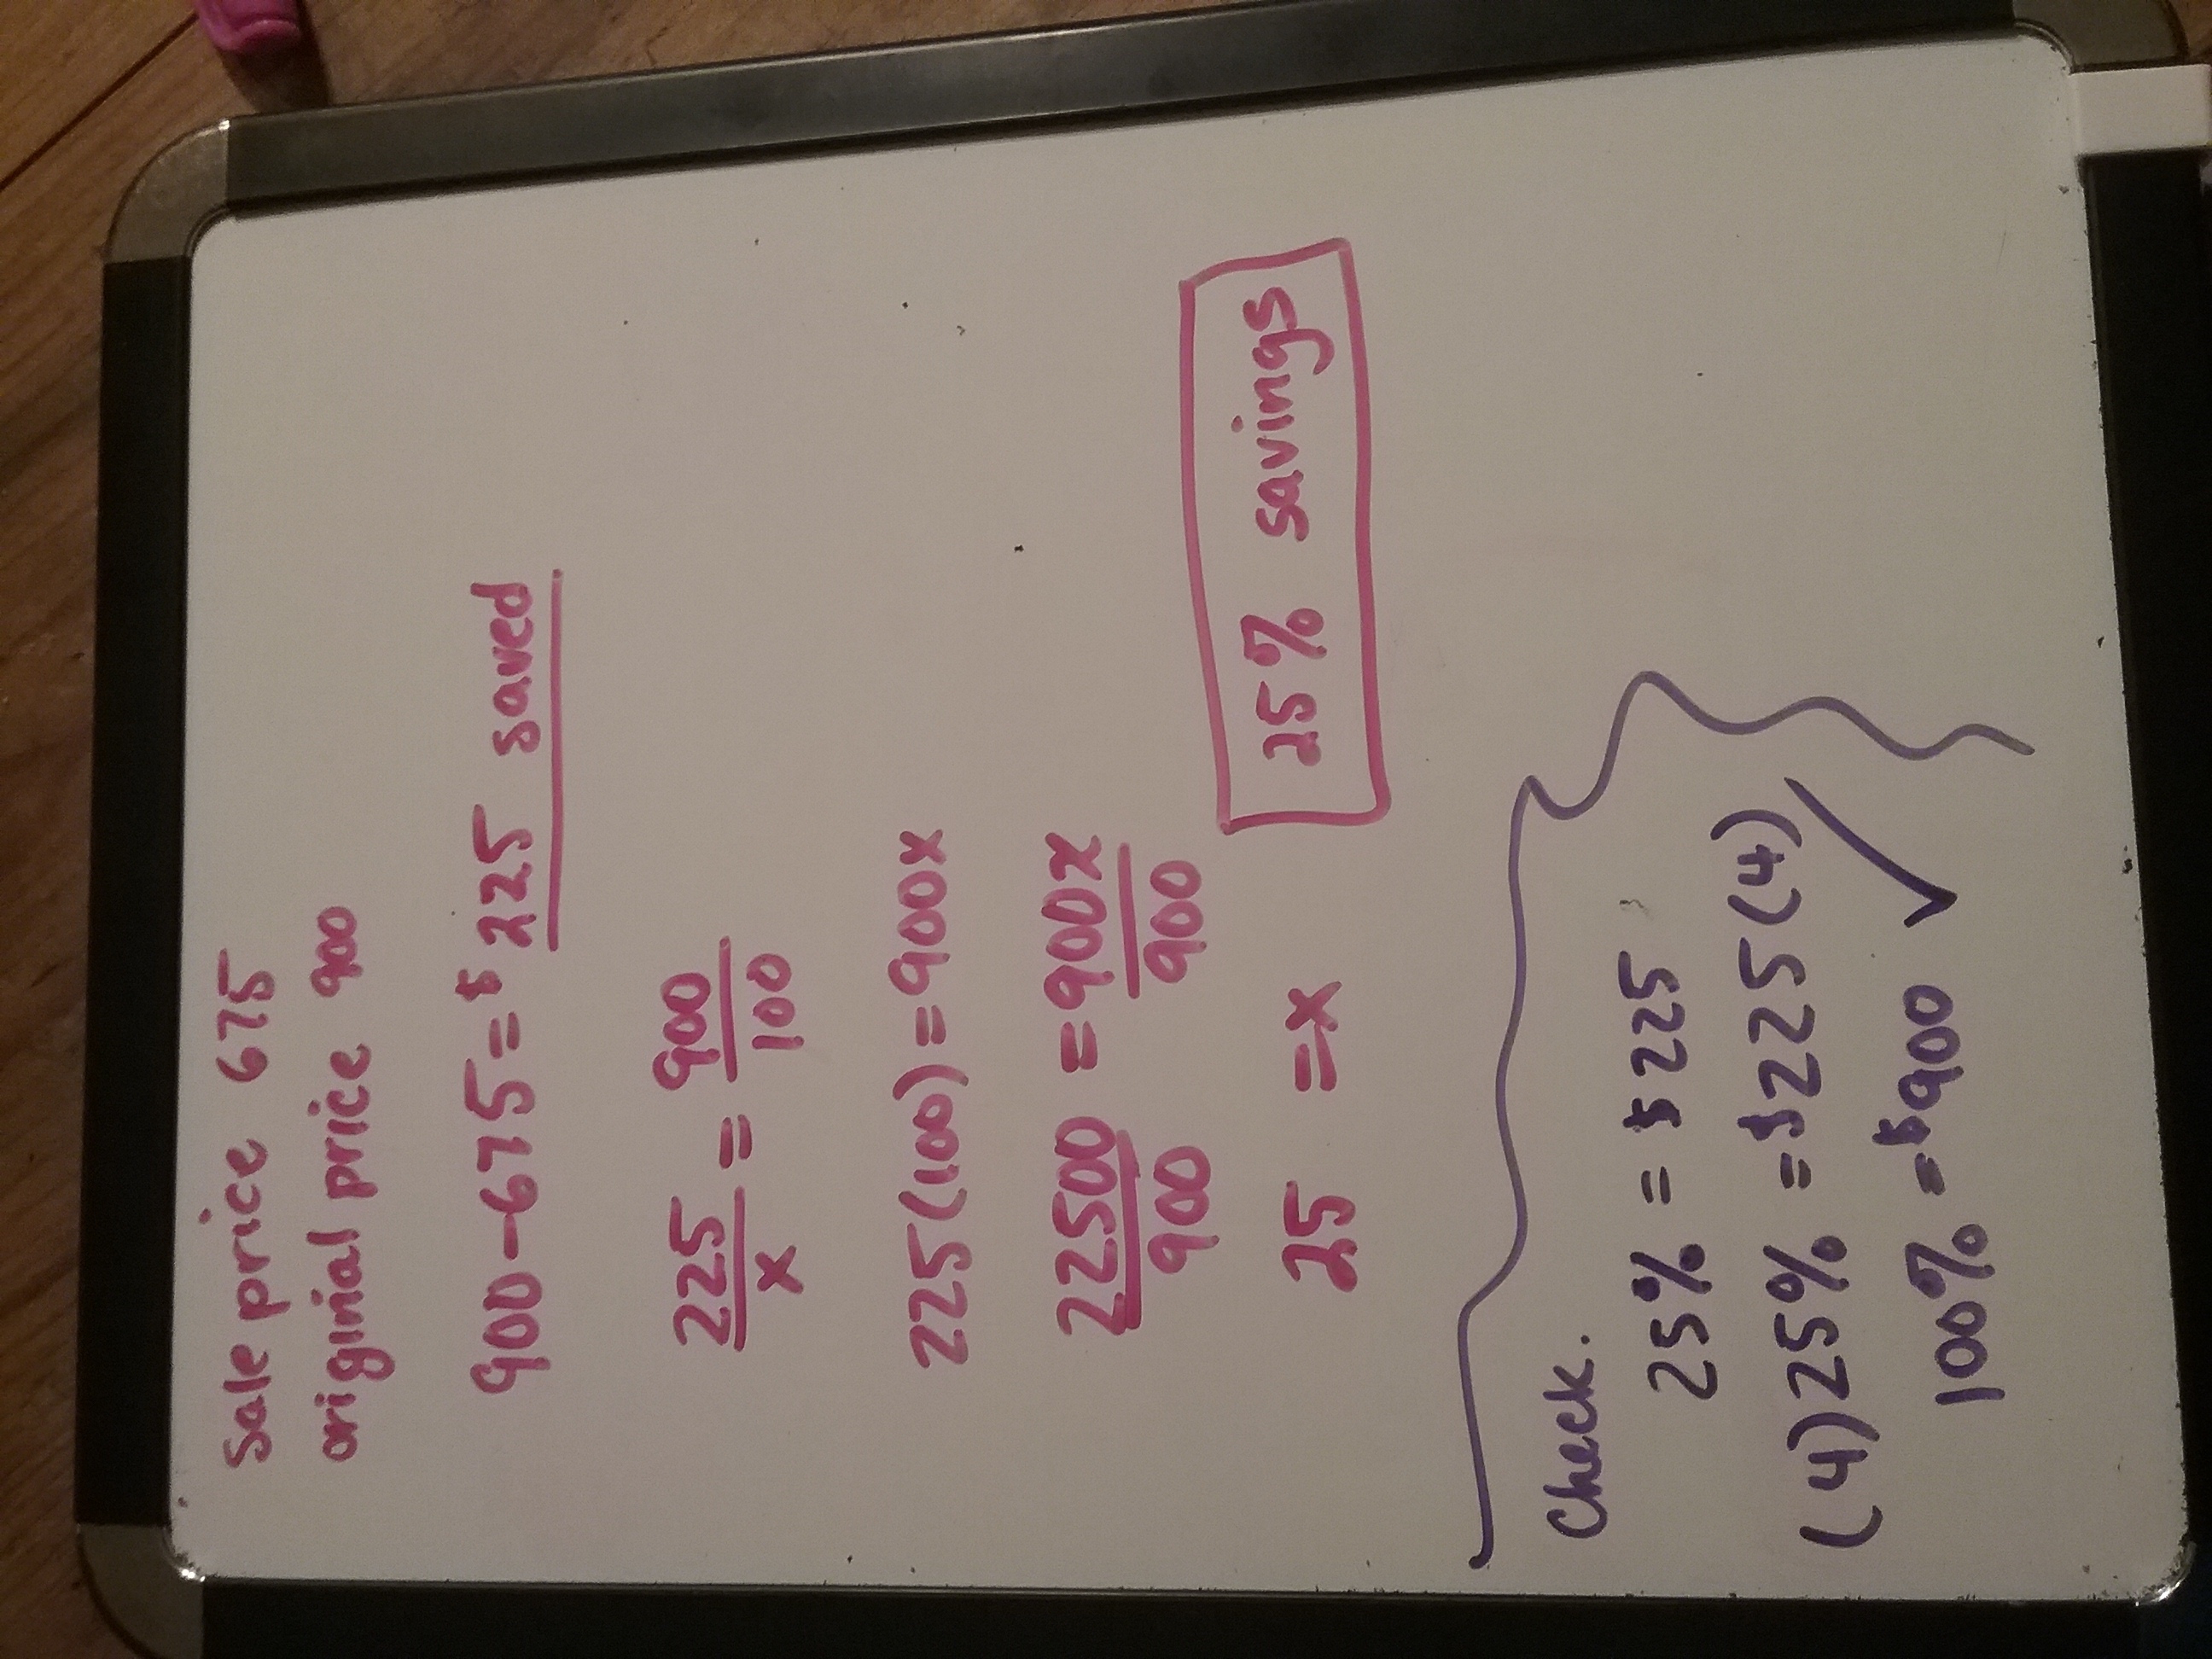 Sale price 675
originial price 900
900-675=$225 saved
225/x = 900/100
225(100)=900x
22500/900 = 900x/900
25 =x
25% savings
Check.
25% = $225
(4)25% =$225(4)
100% =$900 ✓